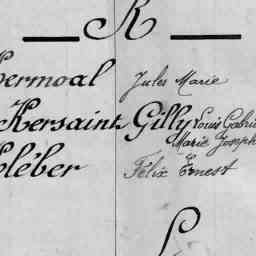 K
Kermoal Jules Marie
Kersaint Gilly Louis Gabriel
Marie Joseph
Kléber Félix Ernest
L